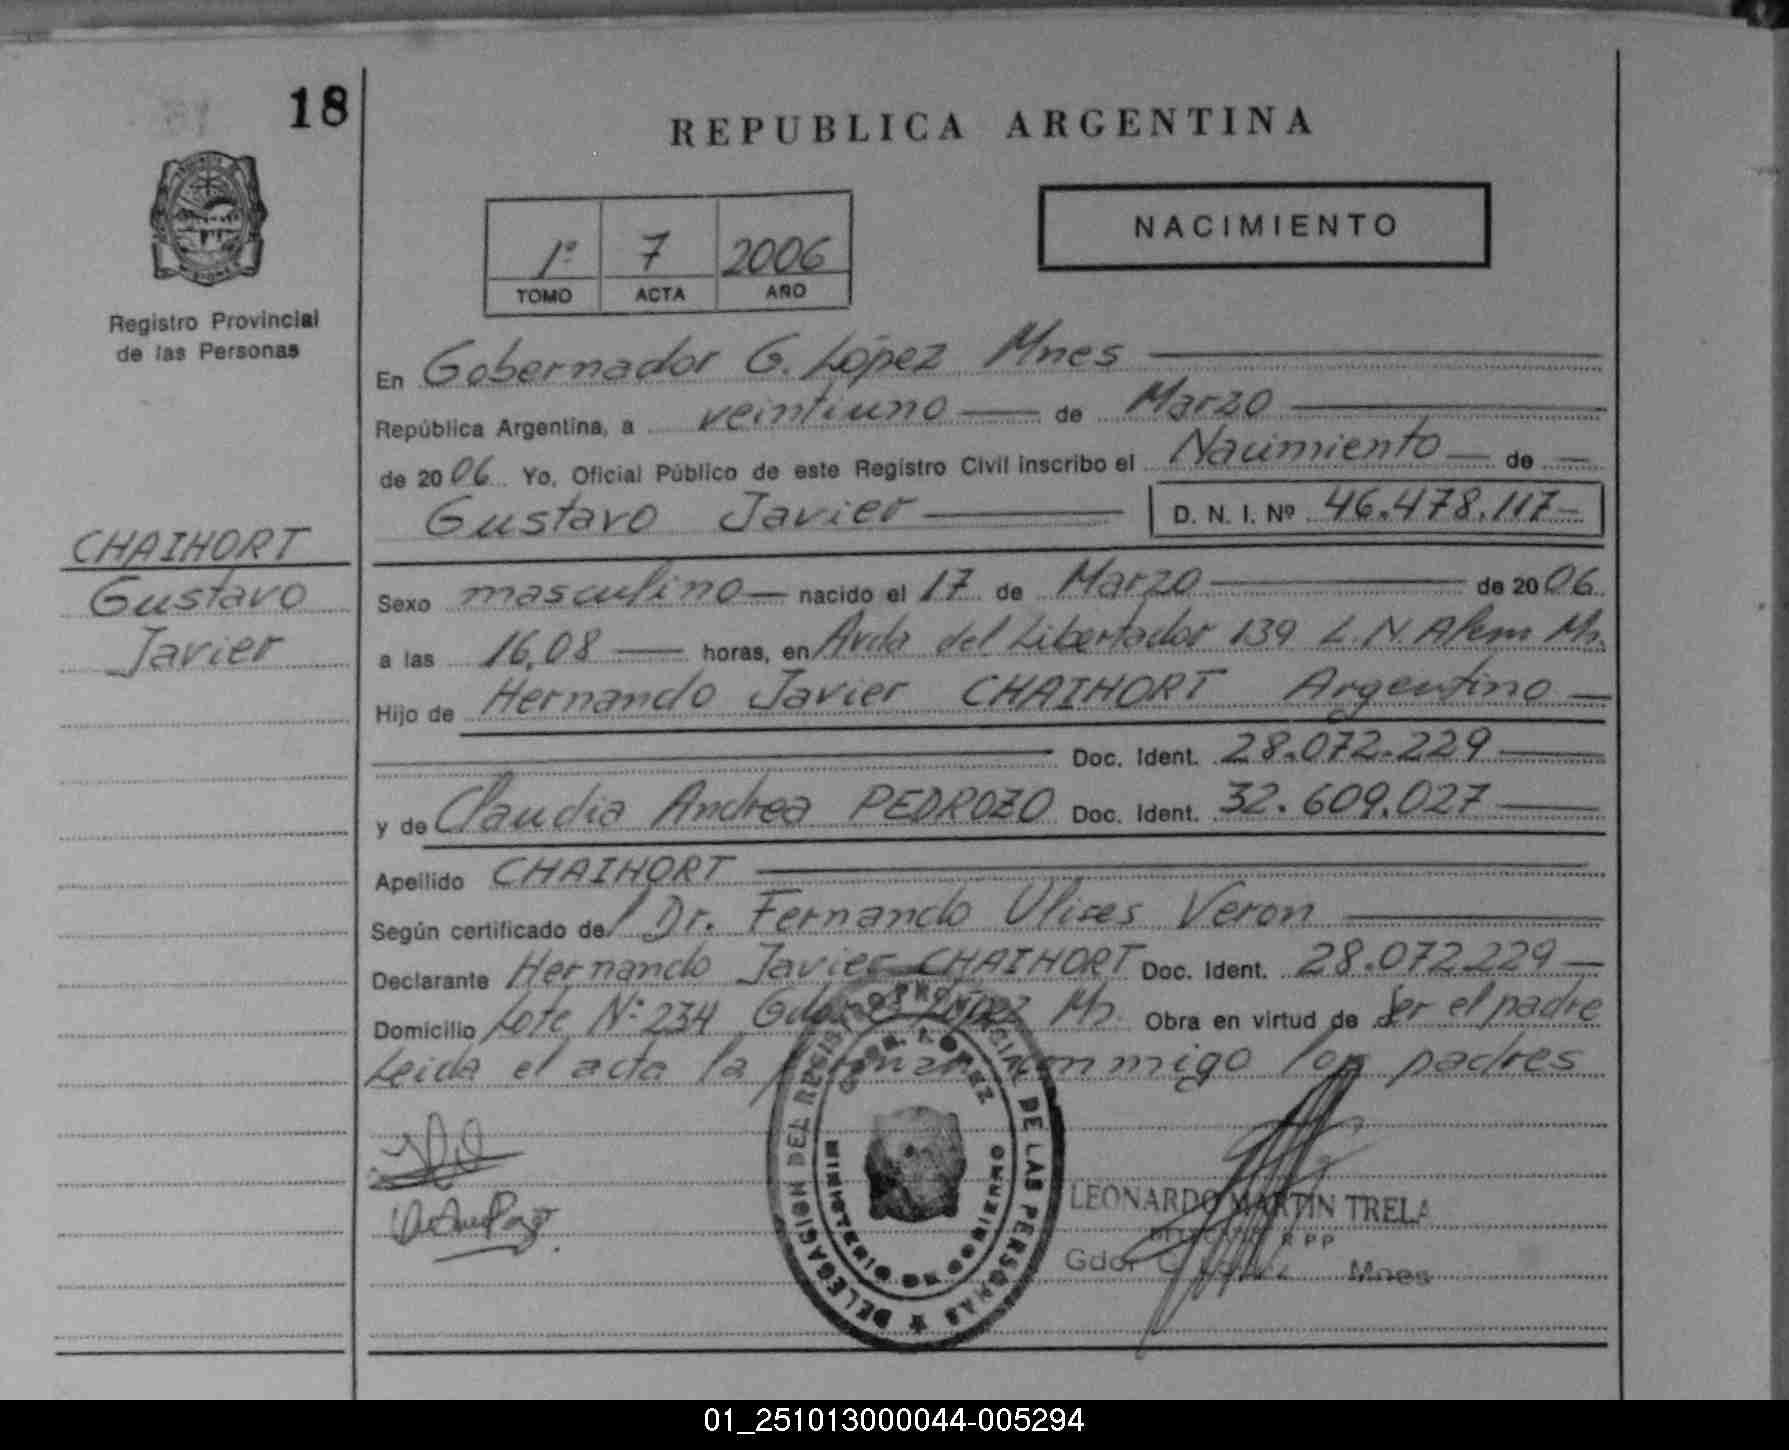 18
REPUBLICA ARGENTINA
NACIMIENTO
1º 7 2006
TOMO ACTA AÑO
Registro Provincial
de las Personas
En Gobernador G. López Mnes
República Argentina, a veintiuno de Marzo
de 2006. Yo, Oficial Público de este Registro Civil inscribo el Nacimiento de
Gustavo Javier D. N. I. Nº 46.478.117
CHAIHORT
Gustavo
Javier
Sexo masculino nacido el 17 de Marzo de 2006.
a las 16,08 horas, en Avda del Libertador 139 L. N. Alem Mn.
Hijo de Hernando Javier CHAIHORT Argentino
Doc. Ident. 28.072.229
y de Claudia Andrea PEDROZO Doc. Ident. 32.609.027
Apellido CHAIHORT
Según certificado del Dr. Fernando Ulises Veron
Declarante Hernando Javier CHAIHORT Doc. Ident. 28.072.229
Domicilio Lote Nº 234 López Mn. Obra en virtud de Ser el padre
Leida el acta la conmigo los padres
DELEGACION DEL REGISTRO PROVINCIAL DE LAS PERSONAS
GDOR. LOPEZ
MINISTERIO DE GOBIERNO
LEONARDO MARTIN TRELA
R PP
Gdor G. López Mnes
01_251013000044-005294